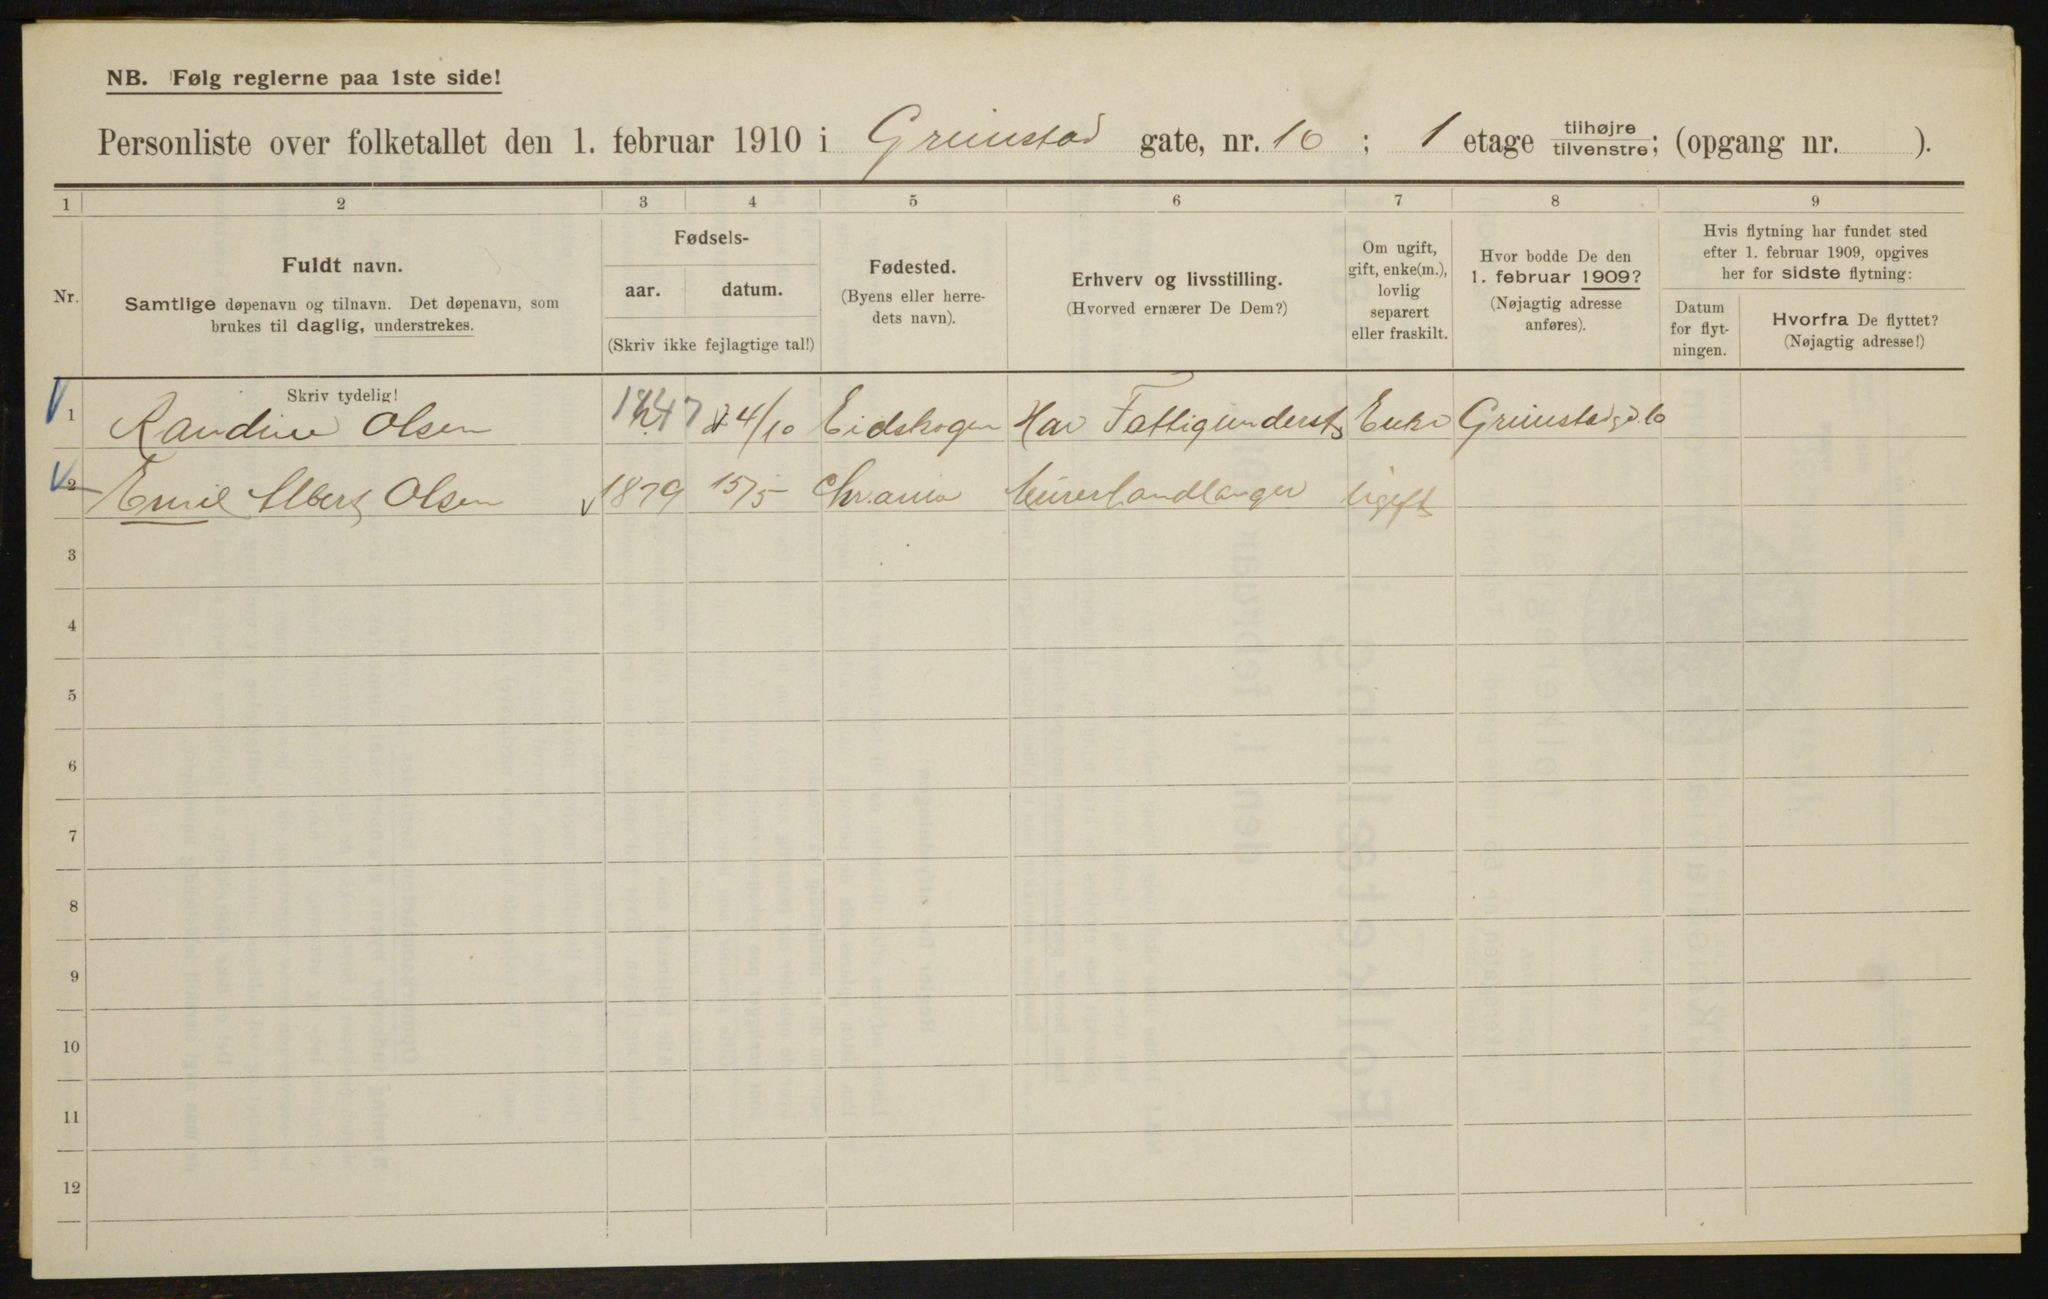 NB. Følg reglerne paa 1ste side!
Personliste over folketallet den 1. februar 1910 i Grimstad gate, nr. 10 ; 1 etage tilhøjre tilvenstre; (opgang nr. ).
1 2 3 4 5 6 7 8 9
Nr.
Fuldt navn.
Samtlige døpenavn og tilnavn. Det døpenavn, som
brukes til daglig, understrekes.
Fødsels-
aar. datum.
(Skriv ikke fejlagtige tal!)
Fødested.
(Byens eller herre-
dets navn).
Erhverv og livsstilling.
(Hvorved ernærer De Dem?)
Om ugift,
gift, enke(m.),
lovlig
separert
eller fraskilt.
Hvor bodde De den
1. februar 1909?
(Nøjagtig adresse
anføres).
Hvis flytning har fundet sted
efter 1. februar 1909, opgives
her for sidste flytning:
Datum
for flyt-
ningen.
Hvorfra De flyttet?
(Nøjagtig adresse!)
Skriv tydelig!
1 Randine Olsen 1847 24/10 Eidskogen Har Fattigunderst Enke Grimstadgd. 10
2 Emil Albert Olsen 1879 15/5 Chr.ania Murerhandlanger Ugift
3
4
5
6
7
8
9
10
11
12